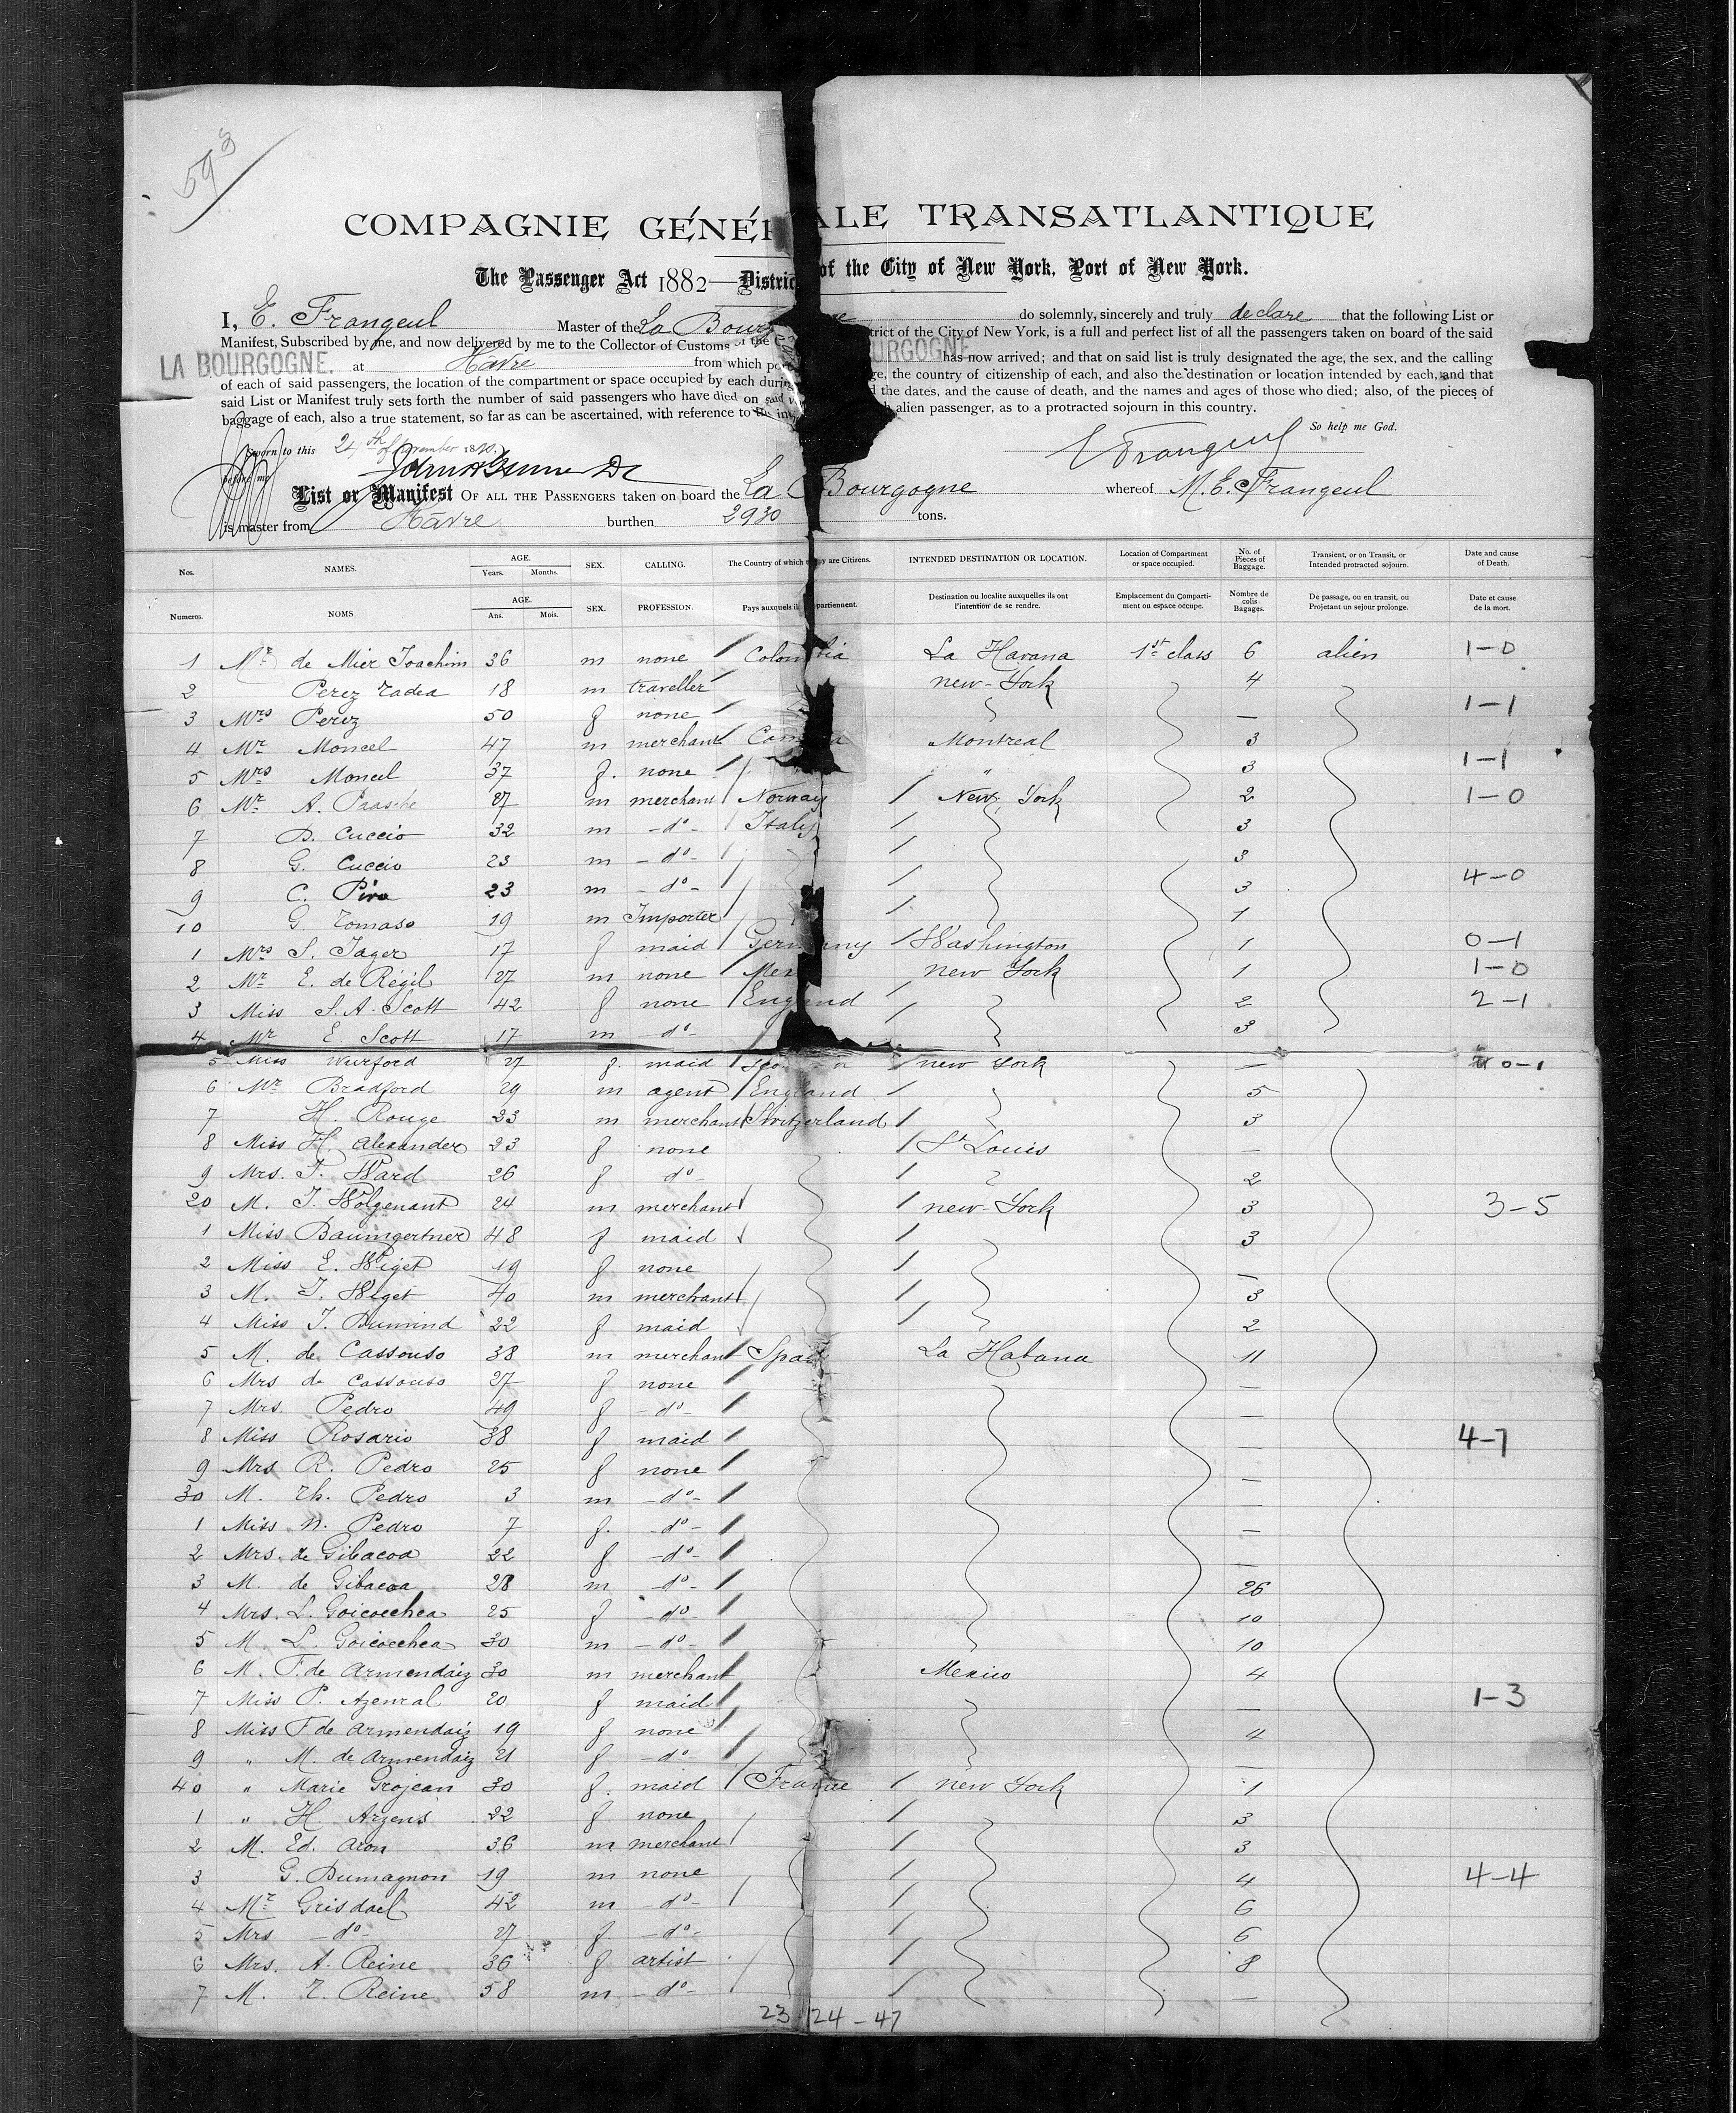 593
COMPAGNIE GÉNÉR ALE TRANSATLANTIQUE
The Passenger Act 1882—Distric of the City of New York, Port of New York.
I, E. Frangeul Master of the La Bourg ne do solemnly, sincerely and truly declare that the following List or
Manifest, Subscribed by me, and now delivered by me to the Collector of Customs of the trict of the City of New York, is a full and perfect list of all the passengers taken on board of the said
LA BOURGOGNE. at Hâvre from which port URGOGNE has now arrived; and that on said list is truly designated the age, the sex, and the calling
of each of said passengers, the location of the compartment or space occupied by each during ge, the country of citizenship of each, and also the destination or location intended by each, and that
said List or Manifest truly sets forth the number of said passengers who have died on said the dates, and the cause of death, and the names and ages of those who died; also, of the pieces of
baggage of each, also a true statement, so far as can be ascertained, with reference to the alien passenger, as to a protracted sojourn in this country.
So help me God.
Sworn to this 24th of November
E Frangeul
before me
List or Manifest OF ALL THE PASSENGERS taken on board the La Bourgogne whereof M. E. Frangeul
is master from Hâvre burthen 2930 tons.
Nos. NAMES. AGE. Years. Months. SEX. CALLING. The Country of which they are Citizens. INTENDED DESTINATION OR LOCATION. Location of Compartment or space occupied. No. of Pieces of Baggage. Transient, or on Transit, or Intended protracted sojourn. Date and cause of Death.
Numeros. NOMS AGE. Ans. Mois. SEX. PROFESSION. Pays auxquels il appartiennent. Destination ou localite auxquelles ils ont l'intention de se rendre. Emplacement du Comparti-ment ou espace occupe. Nombre de colis Bagages. De passage, ou en transit, ou Projetant un sejour prolonge. Date et cause de la mort.
1 Mr de Mier Joachim 36 m none Colombia La Havana 1st class 6 alien 1-0
2 Perez Tadea 18 m traveller new-York 4
3 Mrs Perez 50 f none — 1-1
4 Mr Moncel 47 m merchant Canada Montreal 3
5 Mrs Moncel 37 f. none " " 3 1-1
6 Mr A. Prasche 27 m merchant Norway New York 2 1-0
7 D. Cuccio 32 m -do- Italy 3
8 G. Cuccio 23 m -do- 3
9 C. Piro 23 m -do- 3 4-0
10 G. Tomaso 19 m Importer 1
1 Mrs S. Jager 17 f maid Germany Washington 1 0-1
2 Mr E. de Régil 27 m none Mex new York 1 1-0
3 Miss S. A. Scott 42 f none England 2 2-1
4 Mr E. Scott 17 m -do- 3
5 Miss Wurford 27 f. maid new York — 0-1
6 Mr Bradford 29 m agent England 5
7 H. Rouge 23 m merchant Switzerland 3
8 Miss H. Alexander 23 f none St Louis —
9 Mrs. J. Ward 26 f do- 2
20 M. J. Wolgenant 24 m merchant new-York 3 3-5
1 Miss Baumgertner 48 f maid 3
2 Miss E. Wiget 19 f none —
3 M. J. Wiget 40 m merchant 3
4 Miss J. Dumind 22 f maid 2
5 M. de Cassouso 38 m merchant Spain La Habana 11
6 Mrs de Cassouso 27 f none —
7 Mrs. Pedro 49 f -do- —
8 Miss Rosario 38 f maid — 4-7
9 Mrs R. Pedro 25 f none —
30 M. Th. Pedro 3 m -do- —
1 Miss N. Pedro 7 f. -do- —
2 Mrs. de Gibacoa 22 f -do- —
3 M. de Gibacoa 28 m -do- 26
4 Mrs. L. Goicoechea 25 f -do 10
5 M. L. Goicoechea 30 m -do- 10
6 M. F. de Armendaiz 30 m merchant Mexico 4
7 Miss P. Azenral 20 f maid — 1-3
8 Miss F de Armendaiz 19 f none 4
9 " M. de Armendaiz 21 f -do- —
40 " Marie Grojean 30 f. maid France new York 1
1 " H Arzens 22 f none 3
2 M. Ed. Aron 36 m merchant 3
3 G. Dumagnon 19 m none 4 4-4
4 Mr Grisdael 42 m -do- 6
5 Mrs -do- 27 f -do- 6
6 Mrs. A. Reine 36 f artist 8
7 M. T. Reine 58 m -do- —
23 24-47